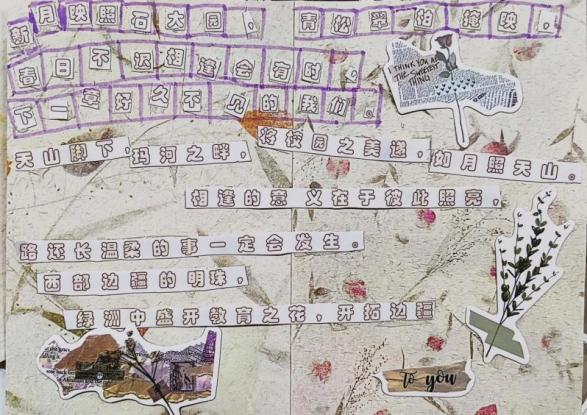 新月映照石大园。青松翠柏掩映。
春日不迟相逢会有时。
下一章好久不见的我们。
I THINK YOU ARE
THE SWEETEST
THING
天山脚下,玛河之畔,将校园之美递,如月照天山。
相逢的意义在于彼此照亮,
路还长温柔的事一定会发生。
西部边疆的明珠,
绿洲中盛开教育之花,开拓边疆
to you